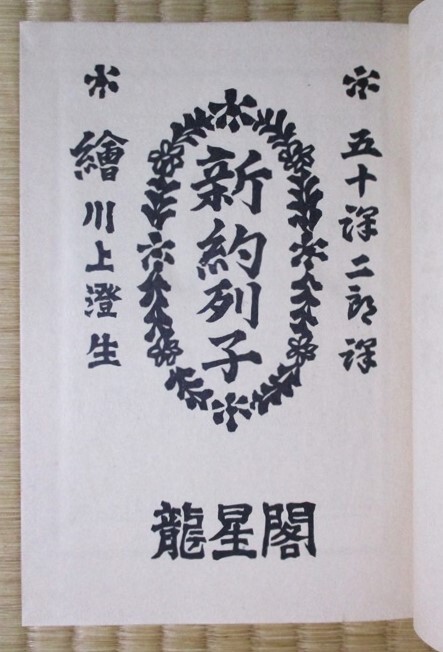 五十澤二郎譯
新約列子
繪川上澄生
龍星閣